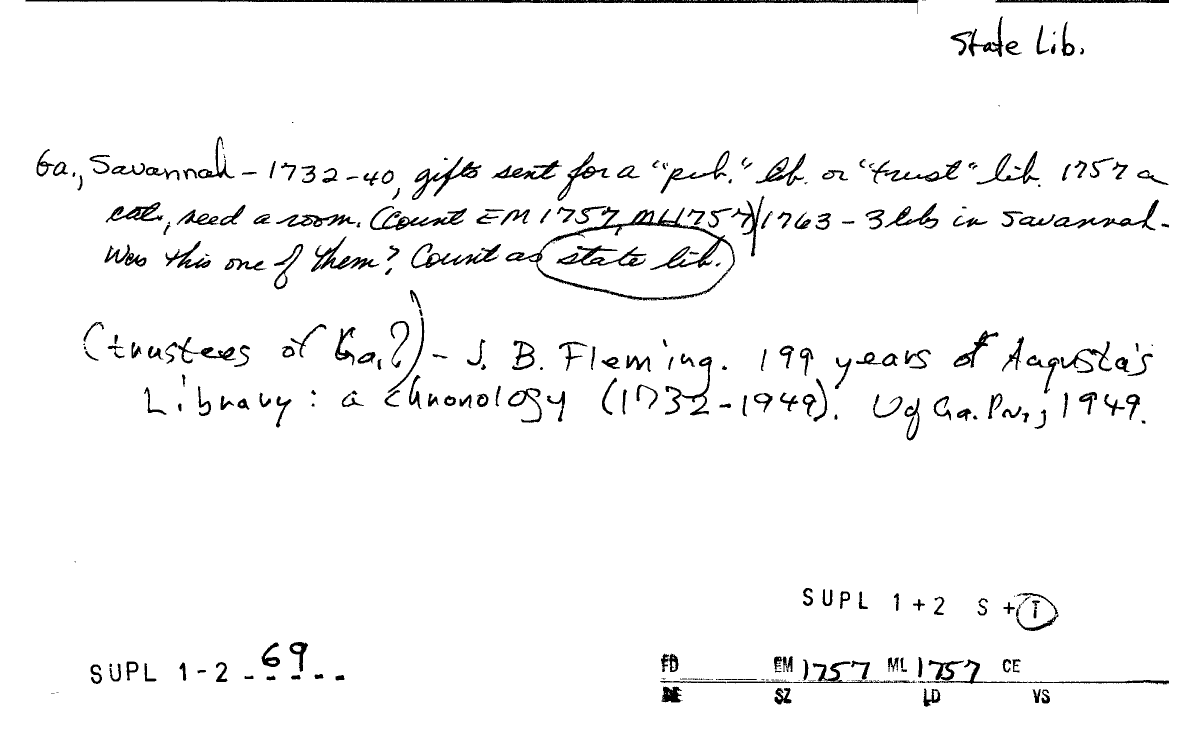 State Lib.
Ga., Savannah - 1732-40, gifts sent for a "pub." lib. or "trust" lib. 1757 a
cat., need a room. (Count EM 1757, ML 1757) 1763 - 3 libs in Savannah -
Was this one of them? Count as state lib.
(trustees of Ga.?) - J. B. Fleming. 199 years of Augusta's
Library: a chronology (1732-1949). U of Ga. Pr., 1949.
SUPL 1+2 S + T
SUPL 1-2 69
FD EM 1757 ML 1757 CE
DE SZ LD VS